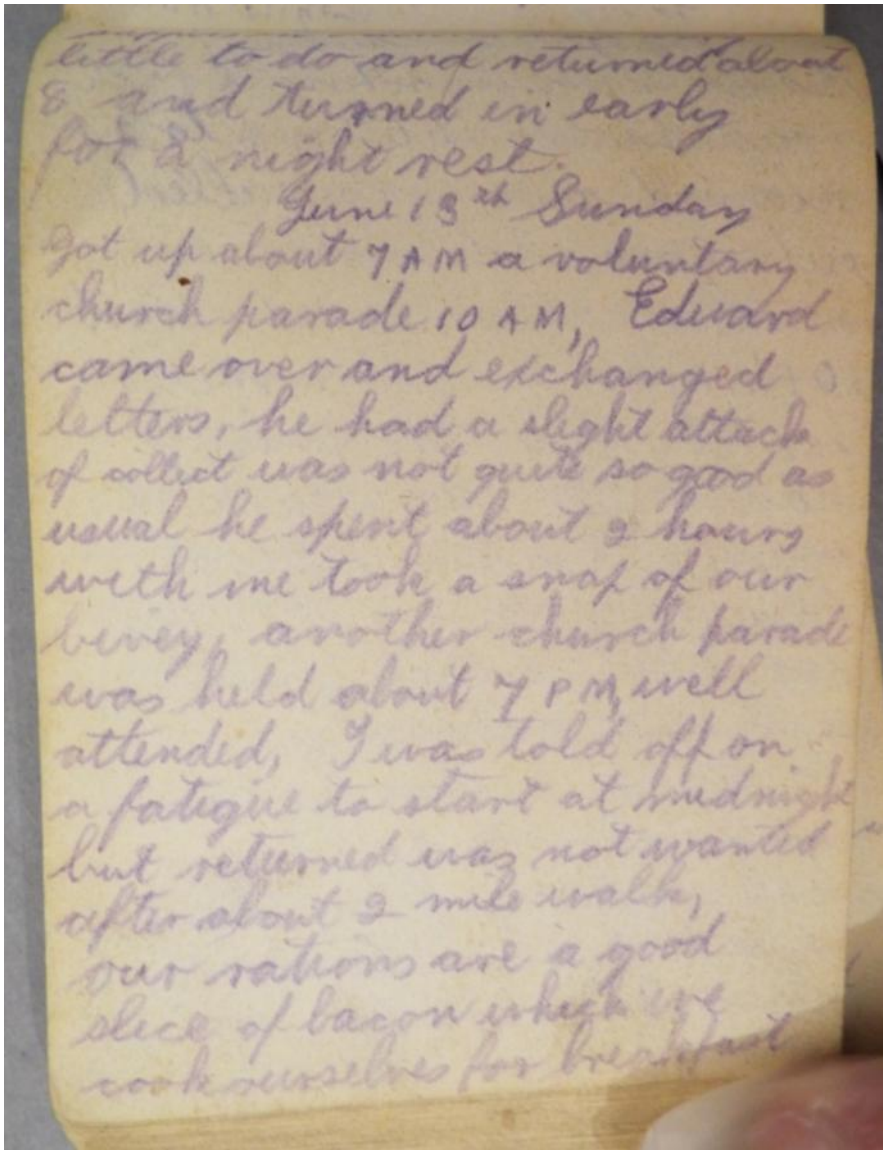 little to do and returned about
8 and turned in early
for a night rest.
June 13th Sunday
got up about 7 AM a voluntary
church parade 10 AM, Edward
came over and exchanged
letters, he had a slight attack
of collect was not quite so good as
usual he spent about 2 hours
with me took a snap of our
bivey, another church parade
was held about 7 PM, well
attended, I was told off on
a fatigue to start at midnight
but returned was not wanted
after about 2 mile walk,
our rations are a good
slice of bacon which we
cook ourselves for breakfast